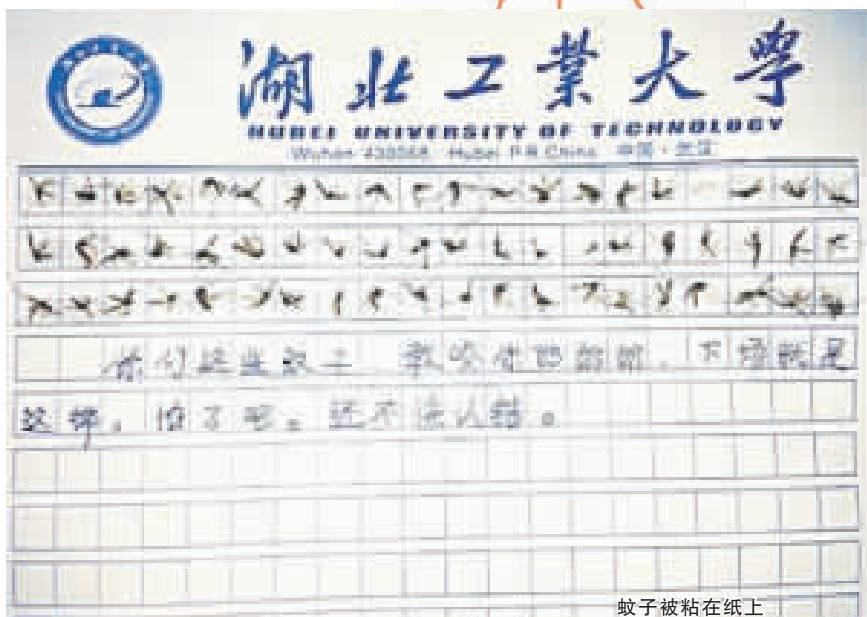 湖北工業大學
HUBEI UNIVERSITY OF TECHNOLOGY
Wuhan 430068 Hubei P.R.China 中国·武汉
你们这些 敢咬 下场就是
这样。怕了吧。还不快认错。
蚊子被粘在纸上